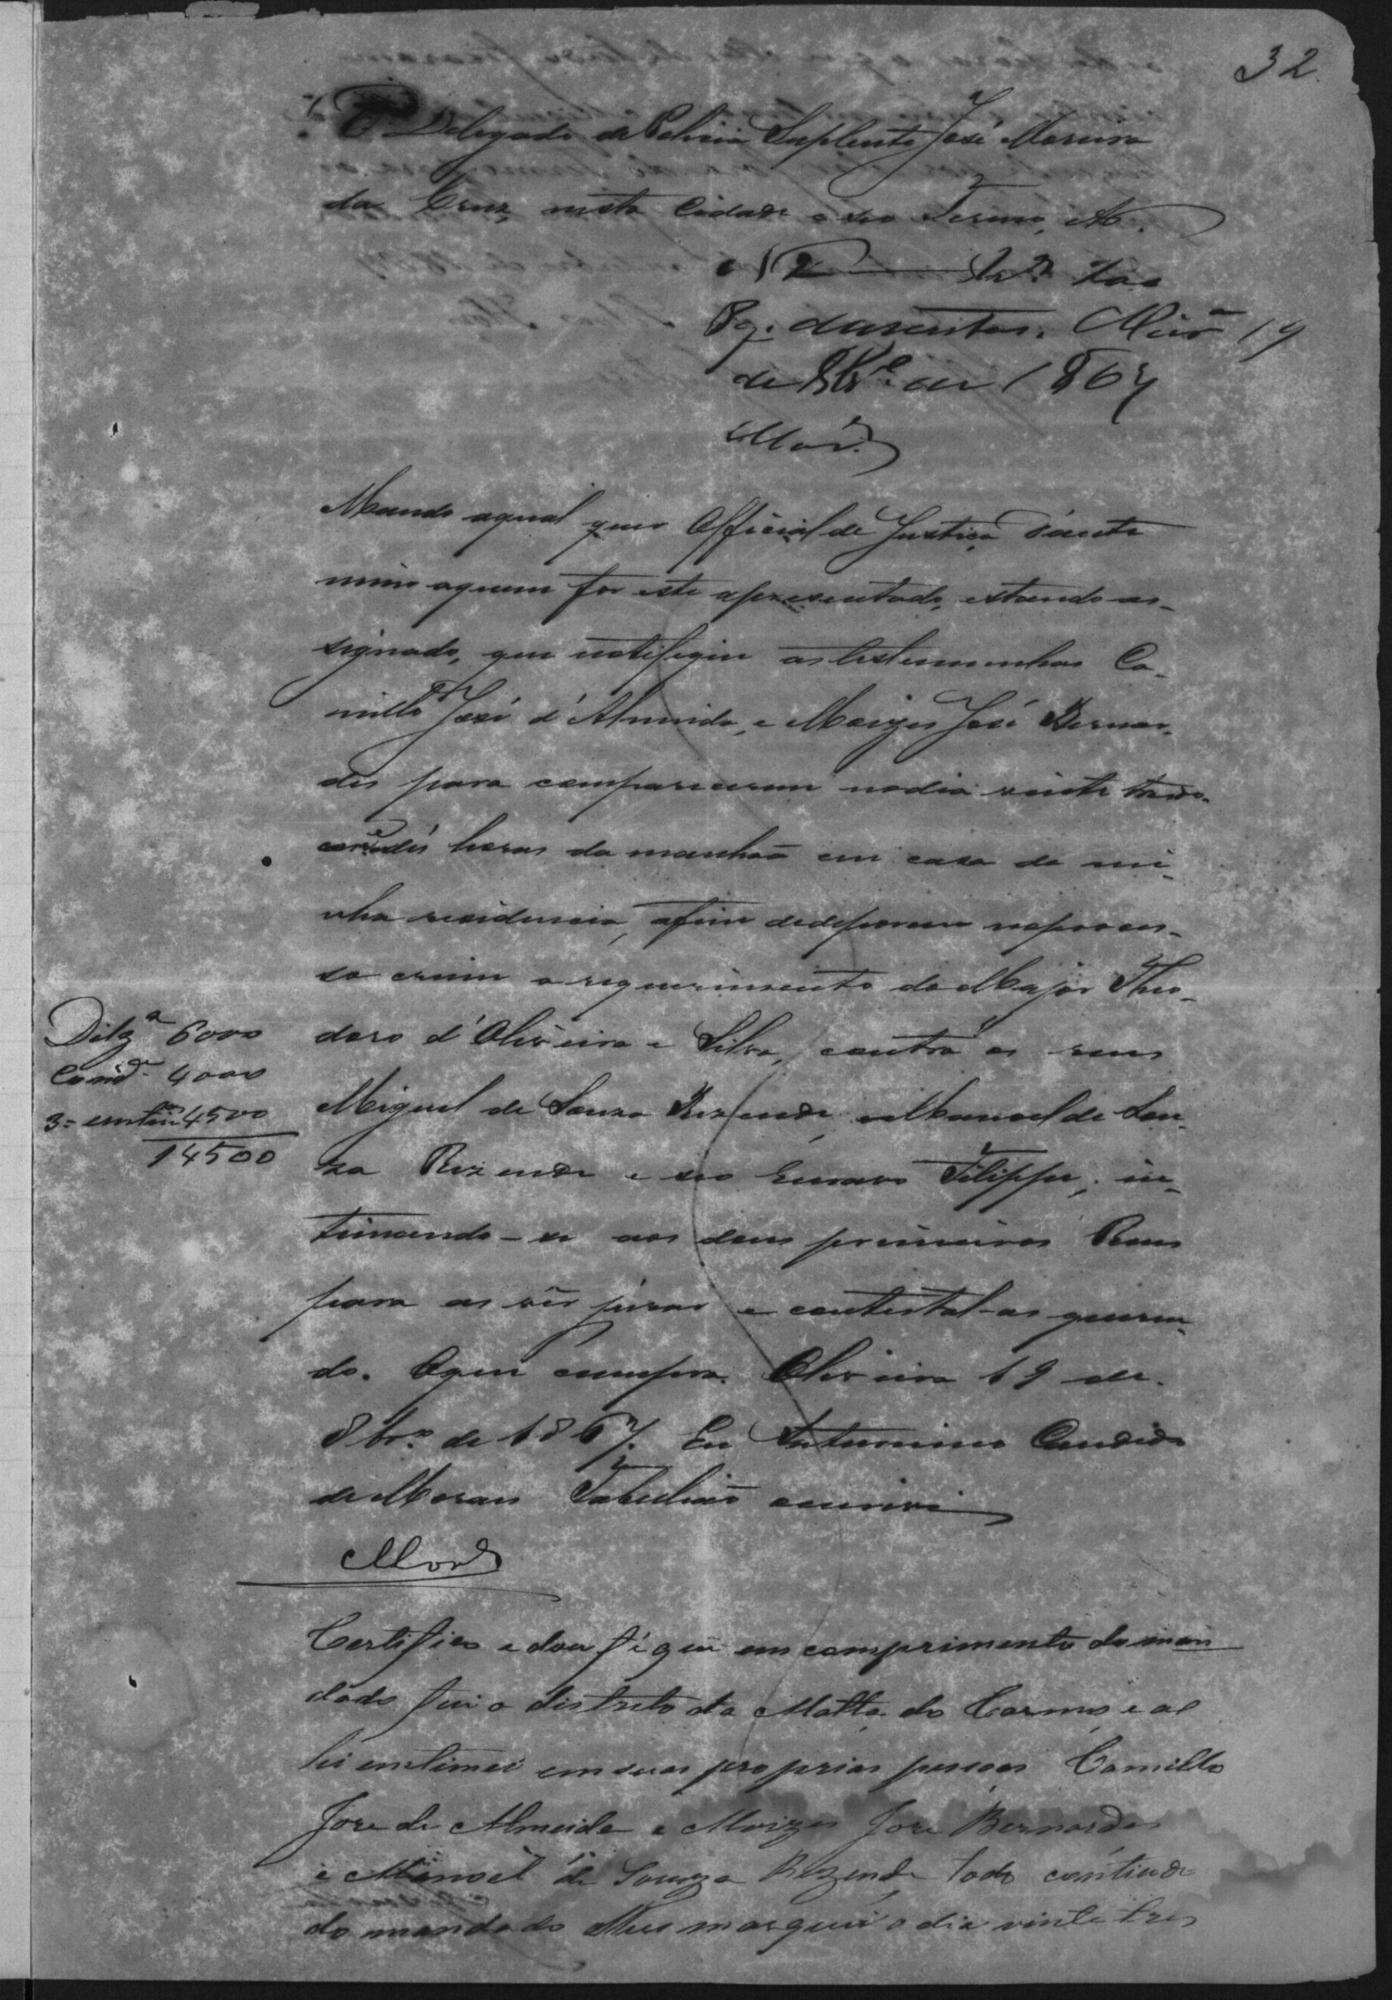 32.
O Delegado de Policia Supplente José Moreira
da Cruz, nesta Cidade e seo Termo, etc.
Pg. duzentos. Olivrª 19
de 8brº de 1867
Mor.es
Mando aqual quer Official de Justiça d'ante
mim aquem for este apresentado, estando as-
signado, que notifique as testemunhas Ca-
millo José d'Almeida, e Moizes José Bernar-
des para comparecerem nodia vinte tres do
corre dés horas da manhaã em casa de mi-
nha residencia, afim dedeporem noproces-
so crime a requerimento do Major Theo-
doro d'Oliveira e Silva, contra os reus
Miguel de Souza Rezende, e Manoel de Sou-
za Rezende e seo Escravo Filippe, in-
timando-se aos dous primeiros Reus
para as vêr jurar e contestal-as queren-
do. Oque cumpra. Oliveira 19 de
8brº de 1867. Eu Saturnino Candido
de Moraes Tabelião escrivi
Mor.es
Dilgª 6000
Cond. 4000
3= entim 4500
14500
Certifico e dou fé que em comprimento do man
dado fui o distrito da Matta do Carmo e al
li entimei em suas proprias pessoas Camillo
Jose de Almeida e Moizes Jose Bernardes
e Manoel de Souza Rezende todo contiudo
do mandado lhes marquei o dia vinte tres